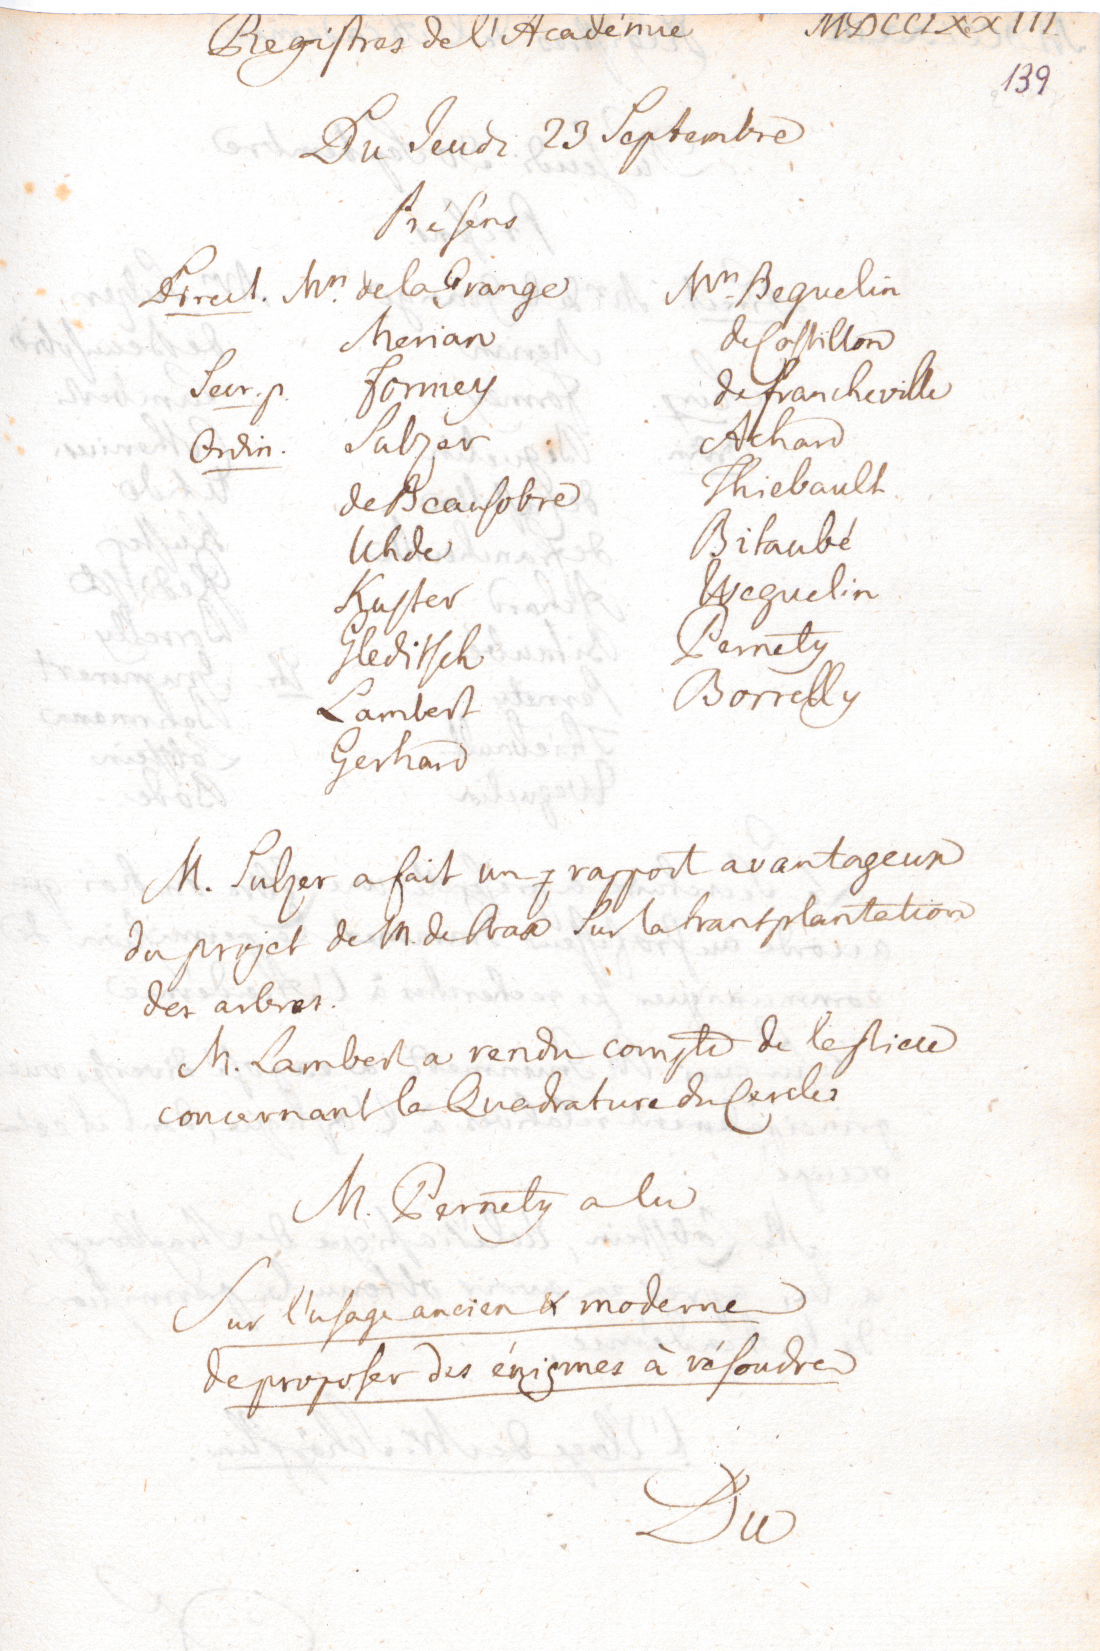 Registres de l'Académie MDCCLXXIII.
139
Du Jeudi 23 Septembre
Présens
Direct. Mrs. de la Grange
Merian
Secr. p. Formey
Ordin. Sulzer
de Beausobre
Uhde
Kuster
Gleditsch
Lambert
Gerhard
Mrs. Beguelin
de Castillon
de francheville
Achard
Thiebault
Bitaubé
Weguelin
Pernety
Borrelly
M. Sulzer a fait un rapport avantageux
du projet de M. de Sur la transplantation
des arbres.
M. Lambert a rendu compte de le piece
concernant la Quadrature du Cercle
M. Pernety a lu
Sur l'usage ancien & moderne
de proposer des énigmes à résoudre
Du